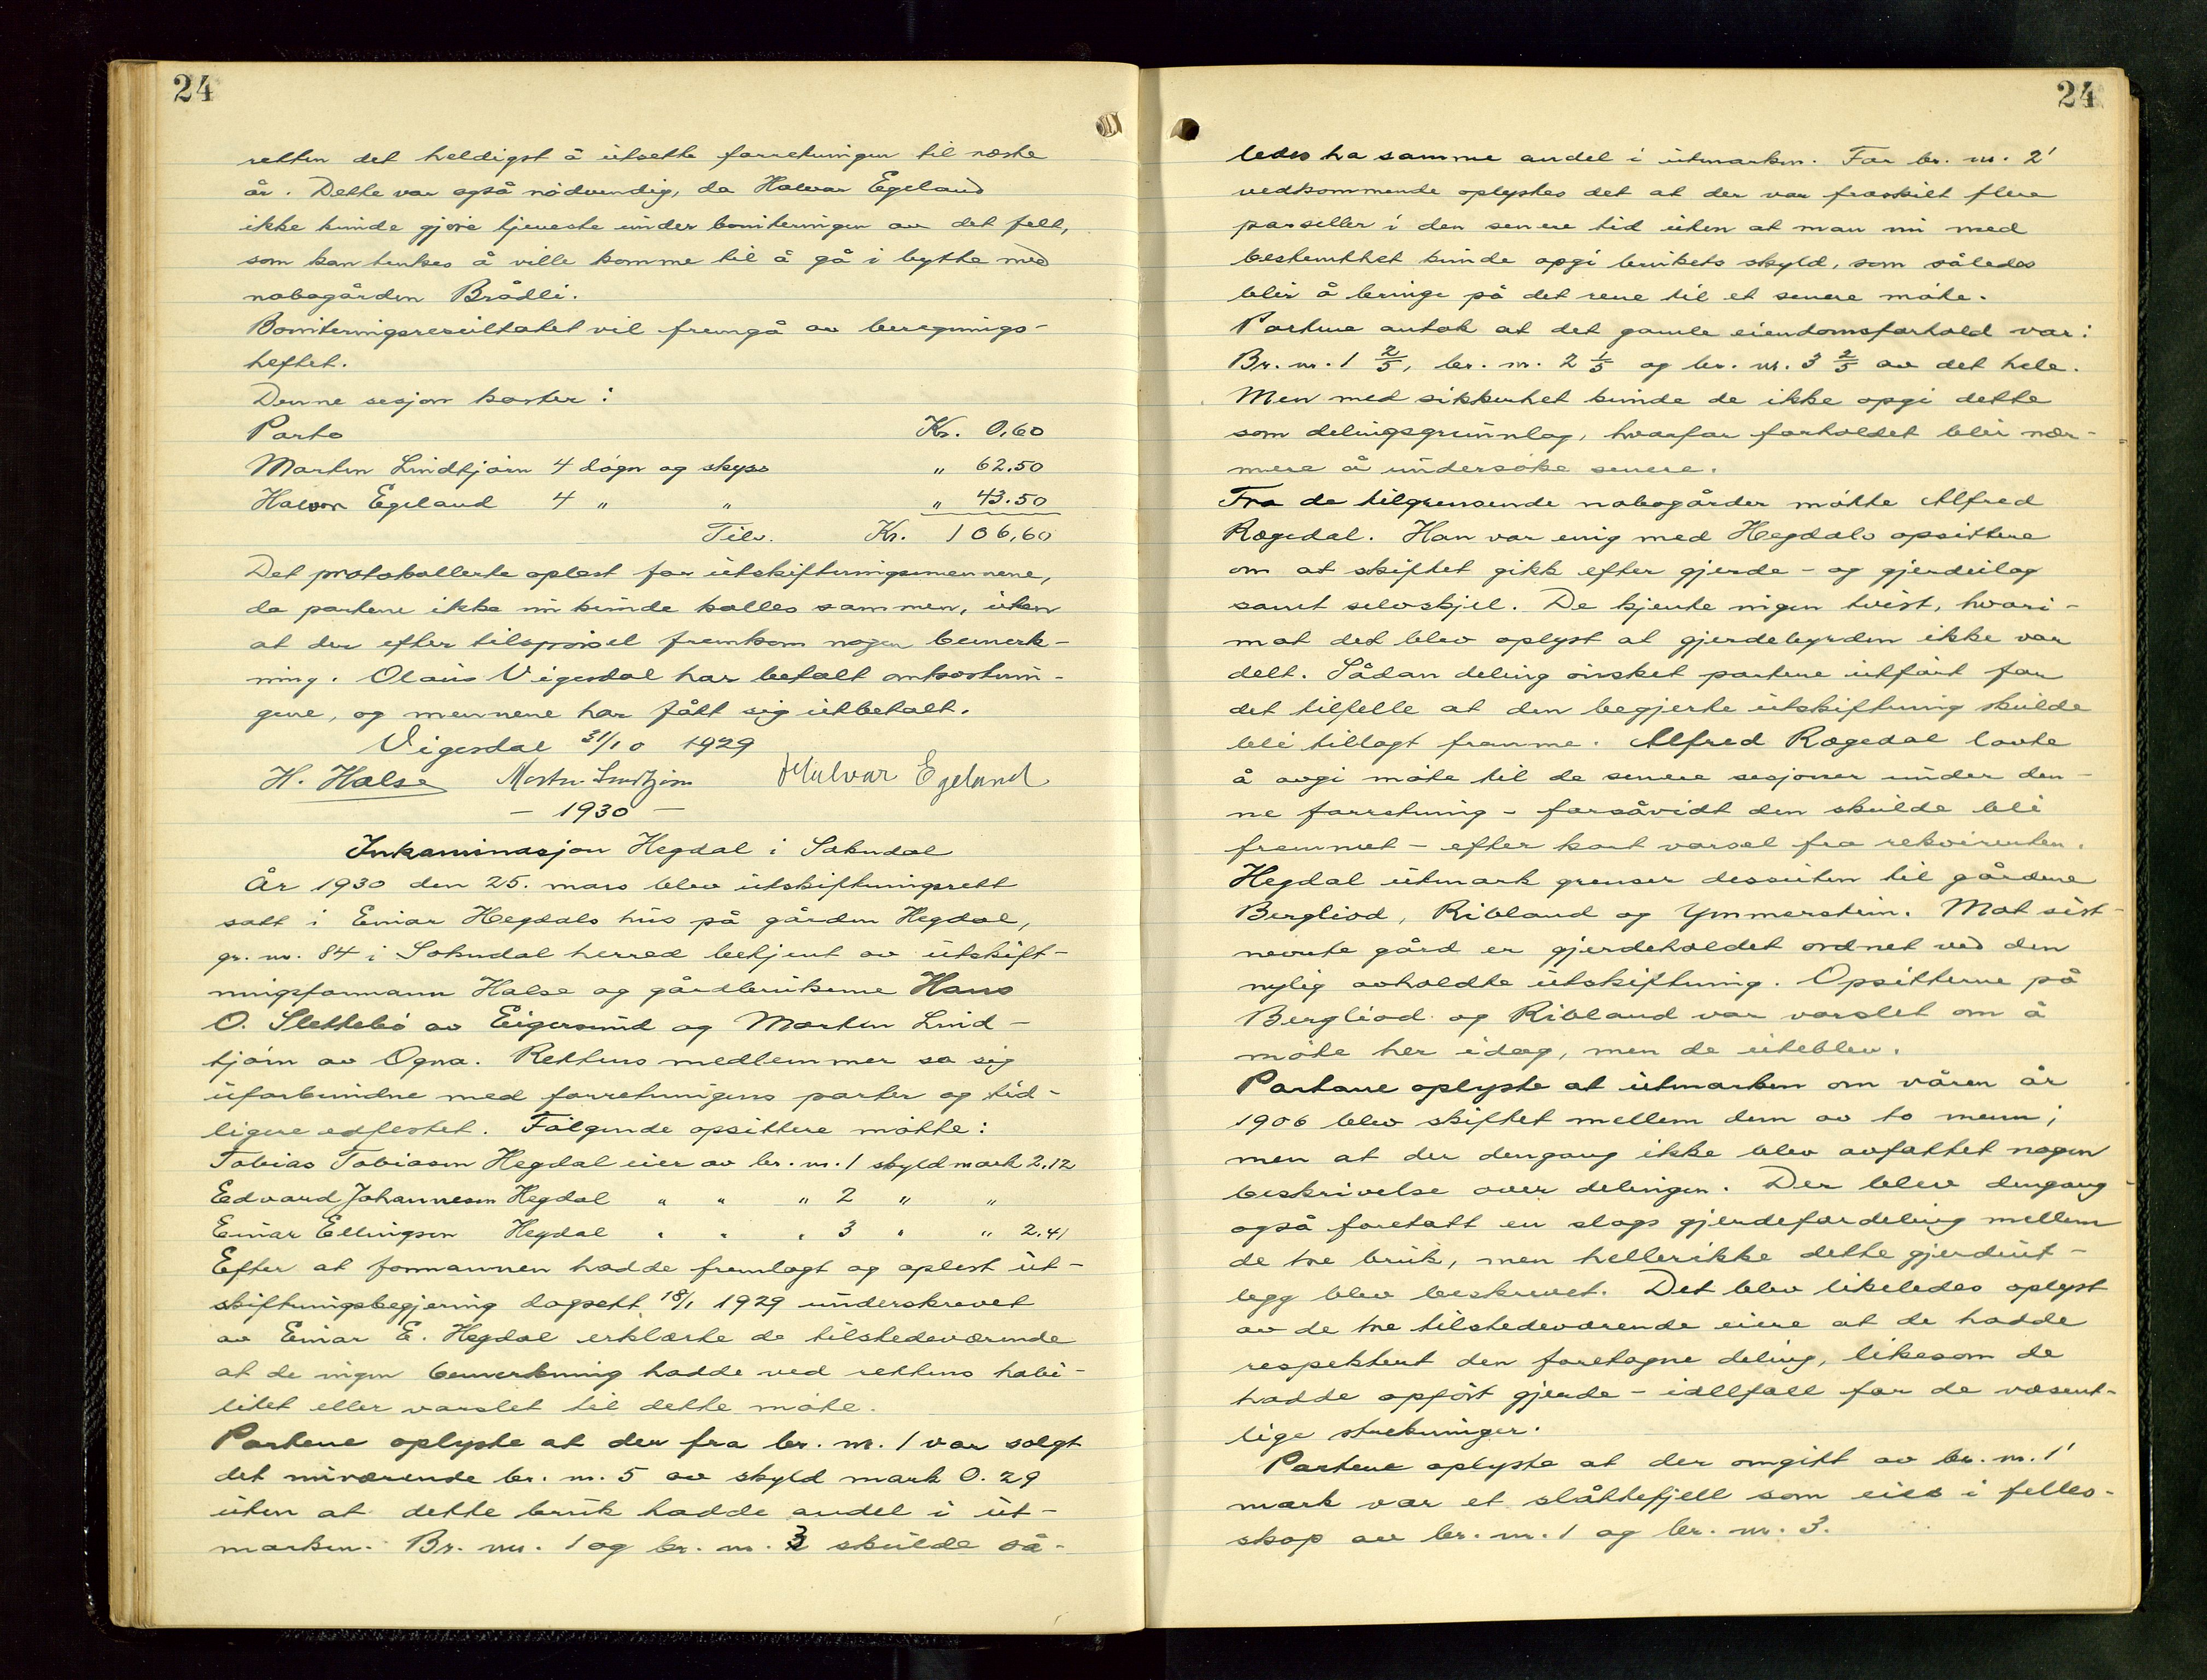 24
retten det heldigst å utsette forretningen til næste
år. Dette var også nødvendig, da Halvar Egeland
ikke kunde gjøre tjeneste under boniteringen av det felt,
som kan tenkes å ville komme til å gå i bytte med
nabogården Brådli.
Boniteringsresultatet vil fremgå av beregnings-
heftet.
Denne sesjon koster:
Porto Kr. 0,60
Martin Lindtjørn 4 døgn og skyss " 62.50
Halvor Egeland 4 " " " 43.50
Tils. Kr. 106,60
Det protokollerte oplest for utskiftningsmennene,
da partene ikke nu kunde kalles sammen, uten
at der efter tilspørsel fremkom nogen bemerk-
ning. Olaus Vigesdal har betalt omkostnin-
gene, og mennene har fått sig utbetalt.
Vigesdal 31/10 1929
H. Halse Martin Lindtjørn Halvar Egeland
- 1930 -
Inkaminasjon Hegdal i Sokndal
År 1930 den 25. mars blev utskiftningsrett
satt i Einar Hegdals hus på gården Hegdal,
gr. nr. 84 i Sokndal herred betjent av utskift-
ningsformann Halse og gårdbrukerne Hans
O. Slettebø av Eigersund og Martin Lind-
tjørn av Ogna. Rettens medlemmer sa sig
uforbundne med forretningens parter og tid-
ligere edfestet. Følgende opsittere møtte:
Tobias Tobiasen Hegdal eier av br. nr. 1 skyldmark 2.12
Edvard Johannesen Hegdal " " " 2 " "
Einar Ellingsen Hegdal " " " 3 " " 2.41
Efter at formannen hadde fremlagt og oplest ut-
skiftningsbegjering dagsett 18/1 1929 underskrevet
av Einar E. Hegdal erklærte de tilstedeværende
at de ingen bemerkning hadde ved rettens habi-
litet eller varslet til dette møte.
Partene oplyste at der fra br. nr. 1 var solgt
det nuværende br. nr. 5 av skyld mark 0.29
uten at dette bruk hadde andel i ut-
marken. Br. nr. 1 og br. nr. 3 skulde så-
24
ledes ha samme andel i utmarken. For br. nr. 2'
vedkommende oplystes det at der var fraskilt flere
parseller i den senere tid uten at man nu med
bestemthet kunde opgi brukets skyld, som således
blir å bringe på det rene til et senere møte.
Partene antok at det gamle eiendomsforhold var:
Br. nr. 1 2/5, br. nr. 2 1/5 og br. nr. 3 2/5 av det hele.
Men med sikkerhet kunde de ikke opgi dette
som delingsgrunnlag, hvorfor forholdet blir nær-
mere å undersøke senere.
Fra de tilgrensende nabogårder møtte Alfred
Rægedal. Han var enig med Hegdals opsittere
om at skiftet gikk efter gjerde- og gjerdeilag
samt selvskjel. De kjente ingen tvist, hvori-
mot det blev oplyst at gjerdebyrden ikke var
delt. Sådan deling ønsket partene utført for
det tilfelle at den begjerte utskiftning skulde
bli tillagt fremme. Alfred Rægedal lovte
å avgi møte til de senere sesjoner under den-
ne forretning - forsåvidt den skulde bli
fremmet - efter kort varsel fra rekvirenten.
Hegdal utmark grenser dessuten til gårdene
Bergliod, Ribland og Ymmerstein. Mot sist-
nevnte gård er gjerdeholdet ordnet ved den
nylig avholdte utskiftning. Opsitterne på
Bergliod og Ribland var varslet om å
møte her idag, men de uteblev.
Partene oplyste at utmarken om våren år
1906 blev skiftet mellem dem av to menn;
men at der dengang ikke blev avfattet nogen
beskrivelse over delingen. Der blev dengang
også foretatt en slags gjerdefordeling mellem
de tre bruk, men hellerikke dette gjerdeut-
legg blev beskrevet. Det blev likeledes oplyst
av de tre tilstedeværende eiere at de hadde
respektert den foretagne deling, likesom de
hadde opført gjerde - iallfall for de vesent-
lige strekninger.
Partene oplyste at der omgitt av br. nr. 1'
mark var et slåttefjell som eies i felles-
skap av br. nr. 1 og br. nr. 3.